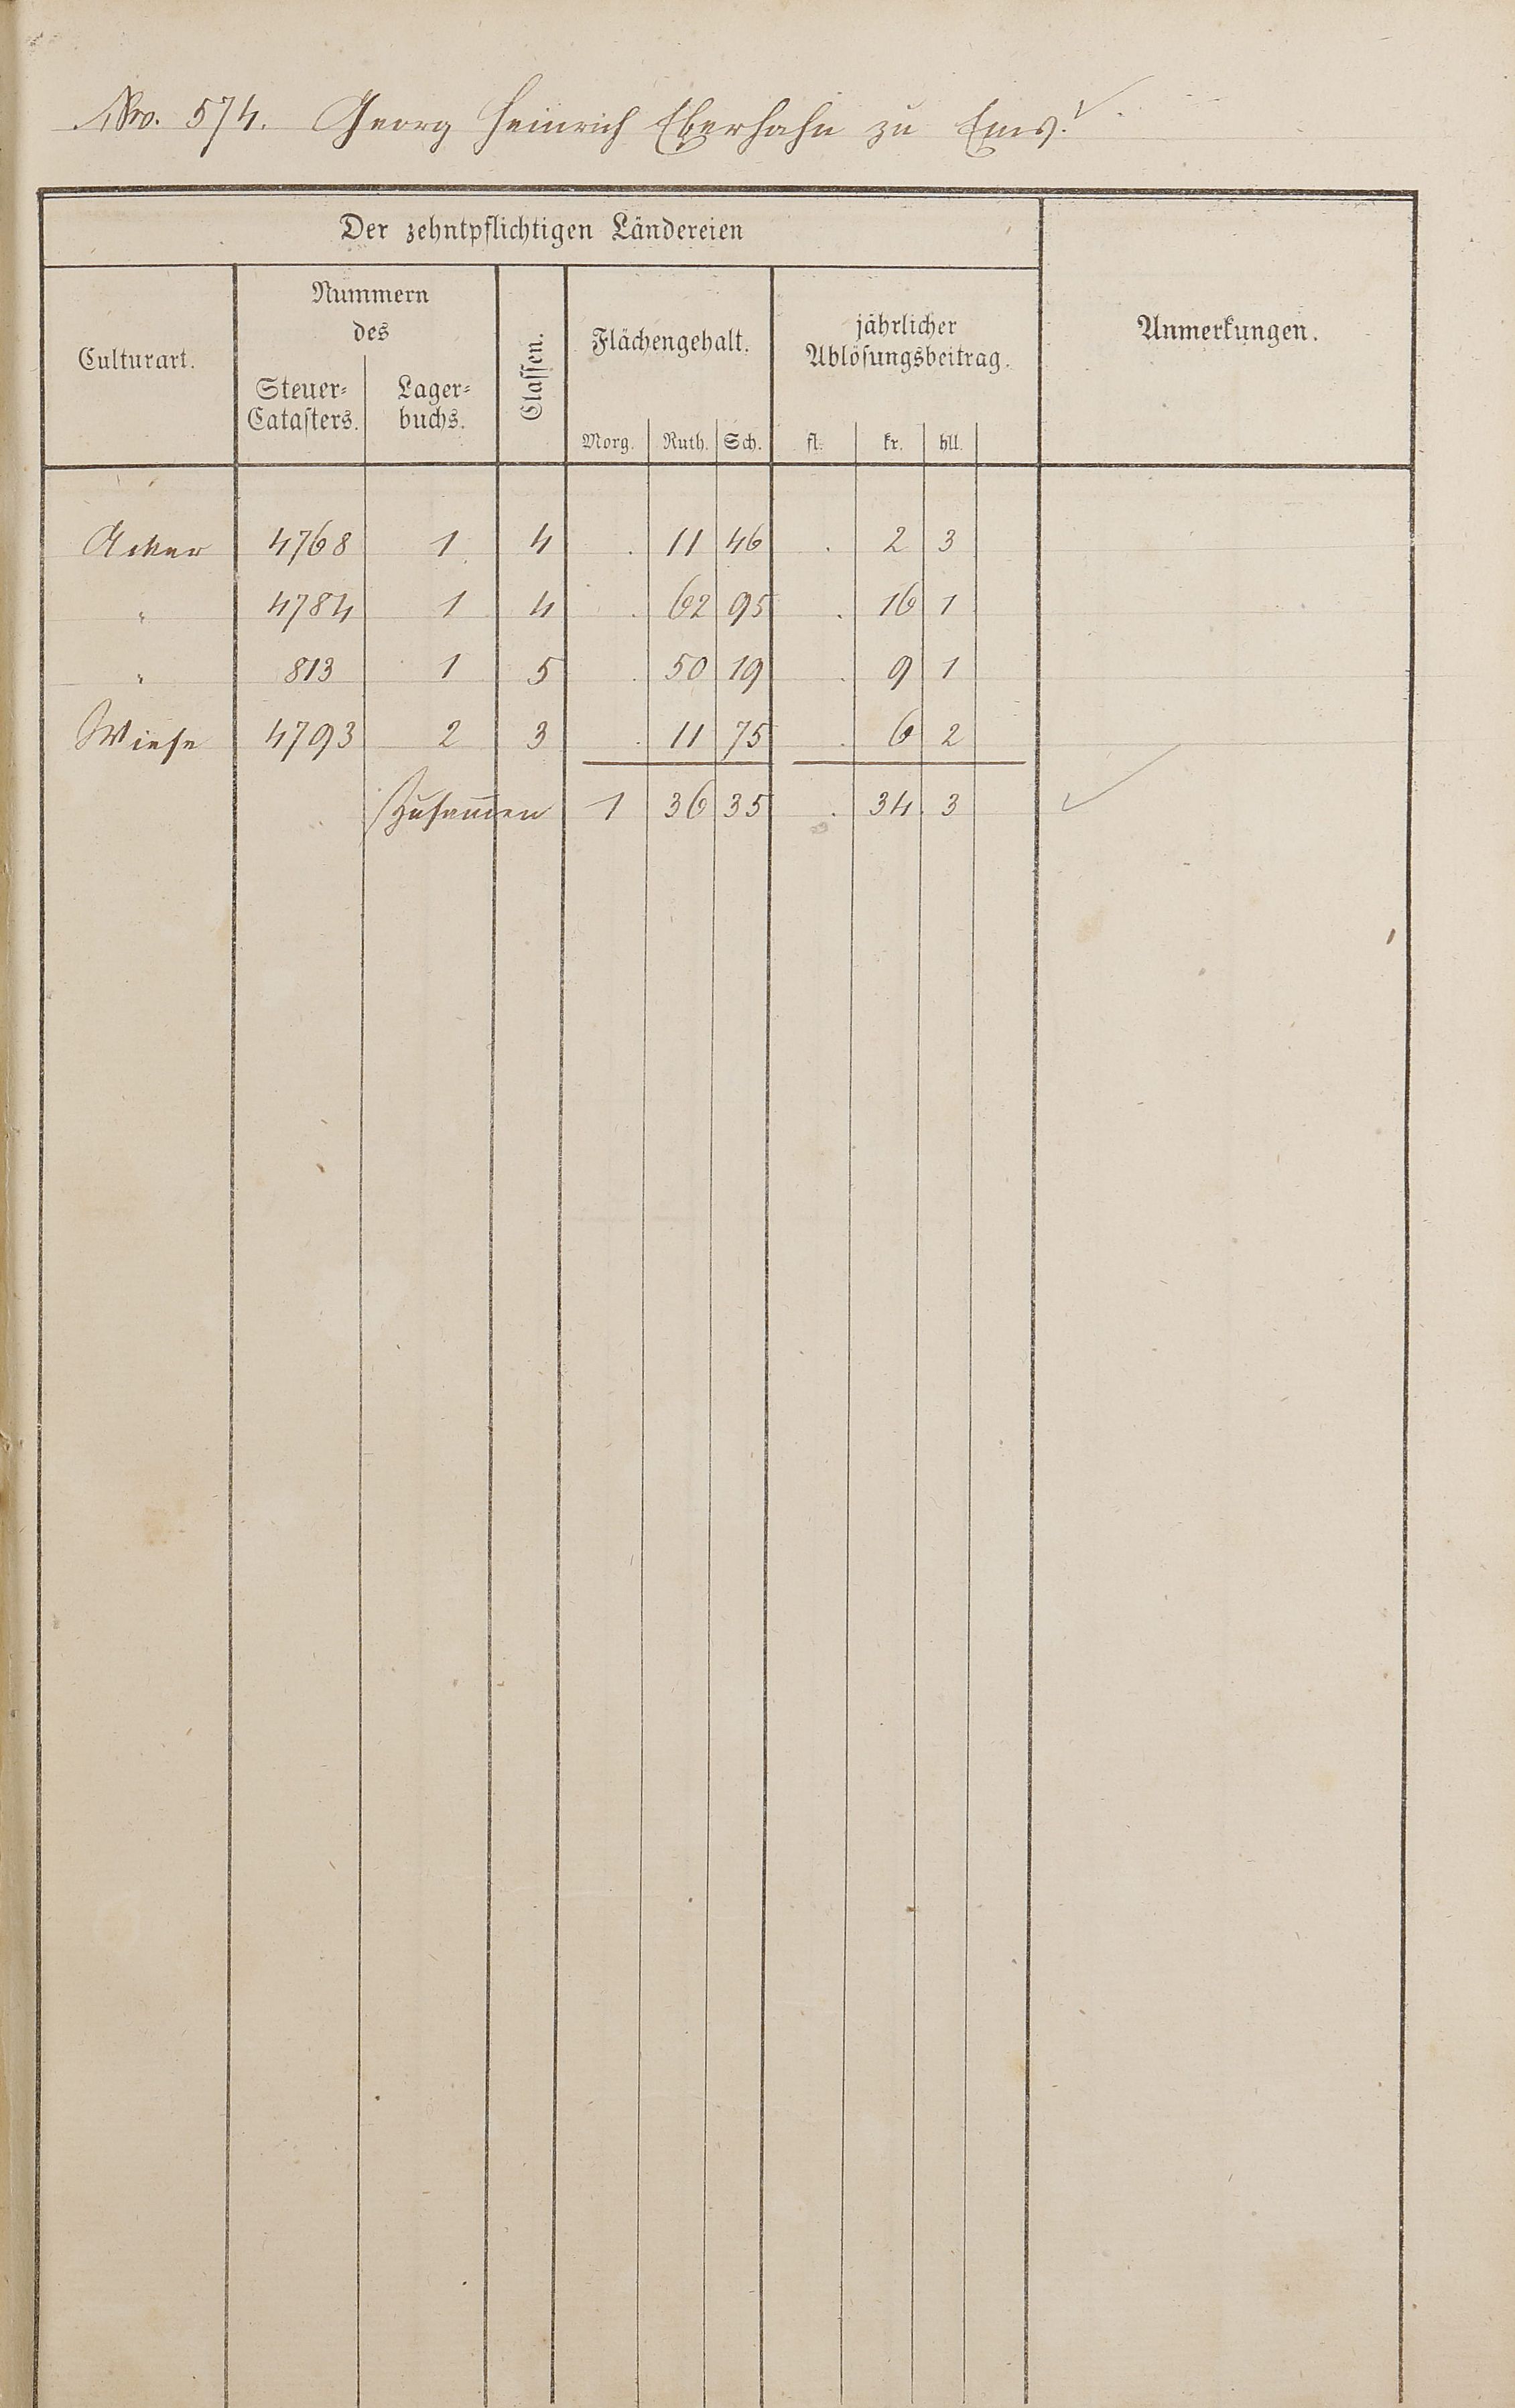 No. 574. Georg Heinrich Eberhahn zu Ems.
Der zehntpflichtigen Ländereien
Culturart.
Nummern
des
Steuer-
Catasters.
Lager-
buchs.
Classen.
Flächengehalt.
Morg. Ruth. Sch.
jährlicher
Ablösungsbeitrag.
fl. kr. hll.
Anmerkungen.
Acker 4768 1 4 . 11 46 . 2 3
" 4784 1 4 . 62 95 . 16 1
" 813 1 5 . 50 19 . 9 1
Wiese 4793 2 3 . 11 75 . 6 2
Zusam̅en 1 36 35 . 34. 3 ✓